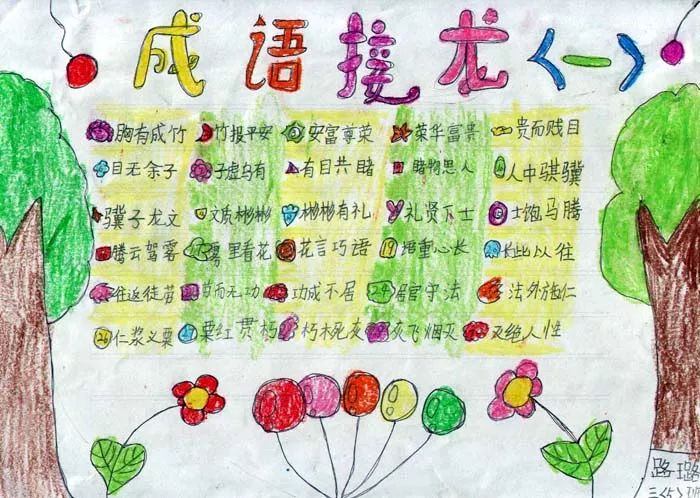 成语接龙〈一〉
胸有成竹 竹报平安 安富尊荣 荣华富贵 贵而贱目
目无余子 子虚乌有 有目共睹 睹物思人 人中骐骥
骥子龙文 文质彬彬 彬彬有礼 礼贤下士 士饱马腾
腾云驾雾 雾里看花 花言巧语 19 语重心长 长此以往
往返徒劳 劳而无功 功成不居 24 居官守法 法外施仁
26 仁浆义粟 粟红贯朽 朽木死灰 灰飞烟灭 灭绝人性
路璐
三〈5〉班